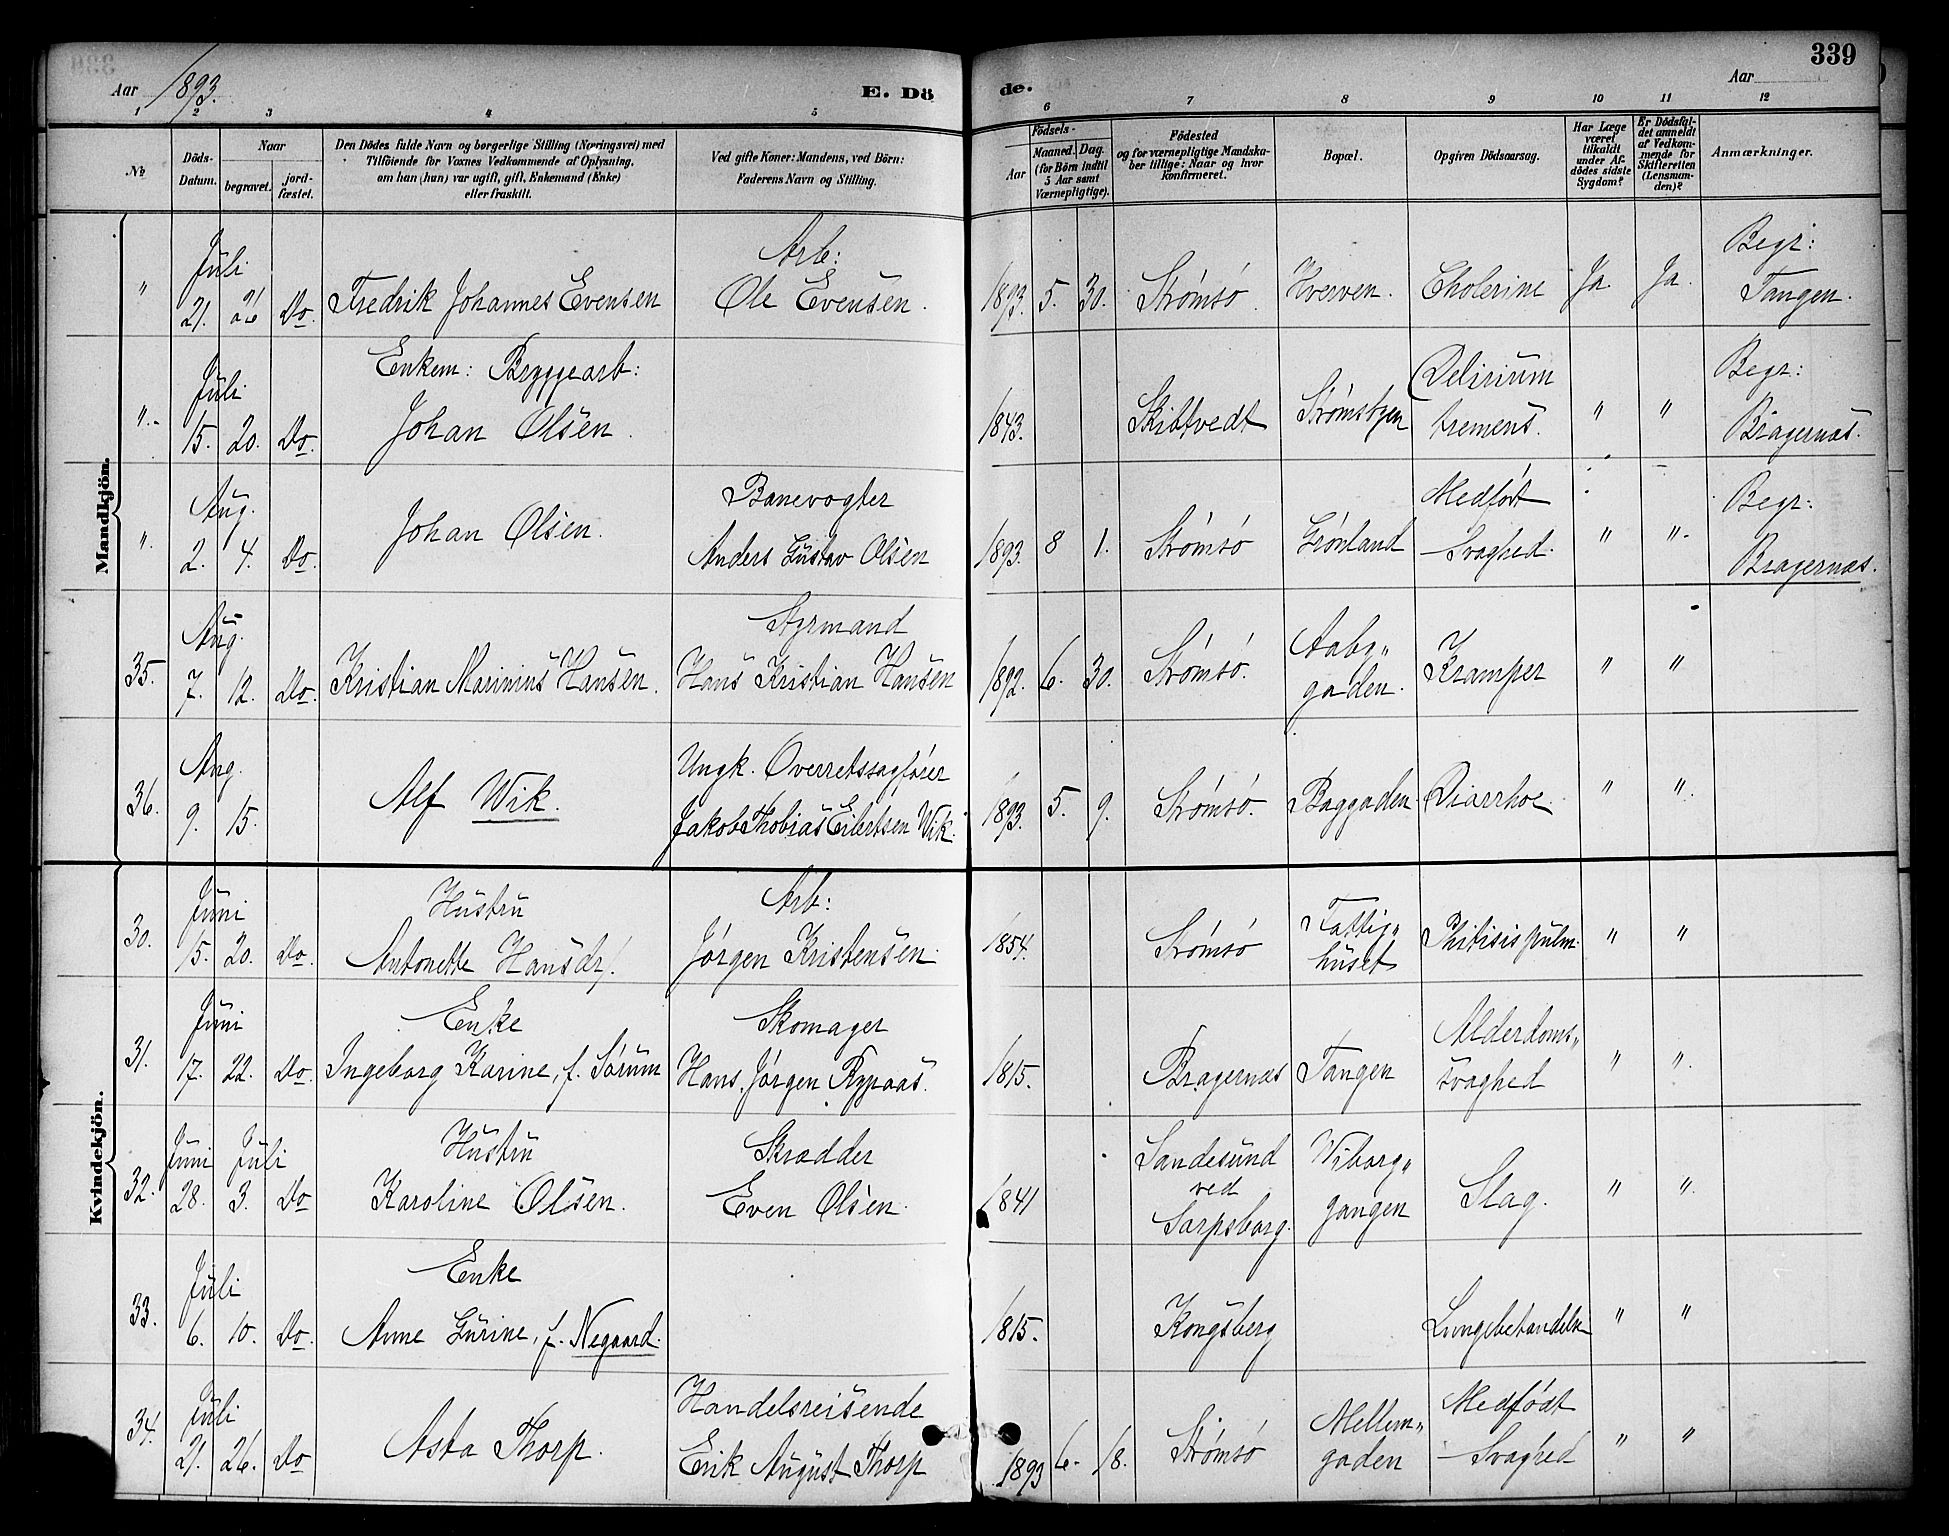 Aar 1893.
E. Dö
de.
Aar
339
1 2 3 4 5 6 7 8 9 10 11 12
No
Döds-Datum.
Naar
begravet.
jord-fæstet.
Den Dödes fulde Navn og borgerlige Stilling (Næringsvei) med
Tilföiende for Voxnes Vedkommende af Oplysning,
om han (hun) var ugift, gift, Enkemand (Enke)
eller fraskilt.
Ved gifte Koner: Mandens, ved Börn:
Faderens Navn og Stilling.
Födsels-
Aar
Maaned. Dag.
(for Börn indtil
5 Aar samt
Værnepligtige).
Födested
og for værnepligtige Mandska-
ber tillige: Naar og hvor
konfirmeret.
Bopæl.
Opgiven Dödsaarsag.
Har Læge
været
tilkaldt
under Af-
dödes sidste
Sygdom?
Er Dödsfal-
det anmeldt
af Vedkom-
mende for
Skifteretten
(Lensman-
den)?
Anmærkninger.
Mandkjön.
" Juli 21. 26 Do. Fredrik Johannes Evensen Arb: Ole Evensen. 1893. 5. 30. Strømsø. Hverven. Cholerine Ja. Ja. Begr: Tangen.
" Juli 15. 20. Do. Enkem: Bryggearb: Johan Olsen. 1843. Skibtvedt Strømsbgen Delirium tremens. " " Begr: Bragernæs.
" Aug. 2. 4. Do. Johan Olsen. Banevogter Anders Gustav Olsen 1893. 8 1. Strømsø Grønland Medfødt Svaghed. " " Begr: Bragernæs.
35. Aug. 7. 12. Do. Kristian Marinius Hansen. Styrmand Hans Kristian Hansen 1892. 6. 30. Strømsø. Aaby" gaden. Kramper " "
36. Aug. 9. 15. Alf Wik. Ungk. Overretssagfører Jakob Thobias Eilertsen Wik. 1893. 5. 9. Strømsø. Baggaden Diarrhoe " "
Kvindekjön.
30. Juni 15. 20. Do. Hustru Antonette Hansdr/. Arb: Jørgen Kristensen. 1854. Strømsø Fattig" huset Phitisis pulm. " "
31. Juni 17. 22. Do. Enke Ingeborg Karine, f. Sørum Skomager Hans Jørgen Rypaas. 1815. Bragernæs Tangen Alderdoms" svaghed " "
32. Juni 28. Juli 3. Do Hustru Karoline Olsen. Skrædder Even Olsen. 1841 Sandesund ved Sarpsborg. Wiborg" gangen Slag. " "
33. Juli 6. 10. Do. Enke Anne Gurine, f. Negaard. 1815. Kongsberg " "
34. Juli 21. 26. Do Asta Thorp. Handelsreisende Erik August Thorp 1893 6. 18. Strømsø Mellem" gaden Medfødt Svaghed " "